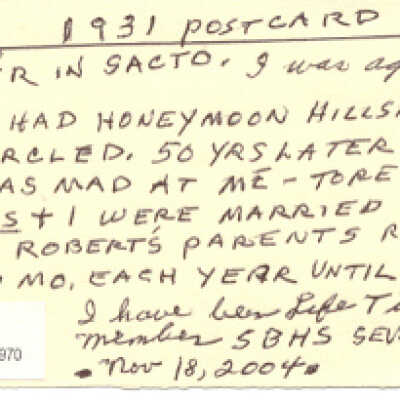 1931 POSTCARD
R IN SACTO. I was ag
HAD HONEYMOON HILLS
RCLED. 50 YRS LATER
AS MAD AT ME - TORE
S + I WERE MARRIED
ROBERT'S PARENTS R
MO. EACH YEAR UNTIL
I have been Life T
member SBHS SEV
970
• Nov 18, 2004 •